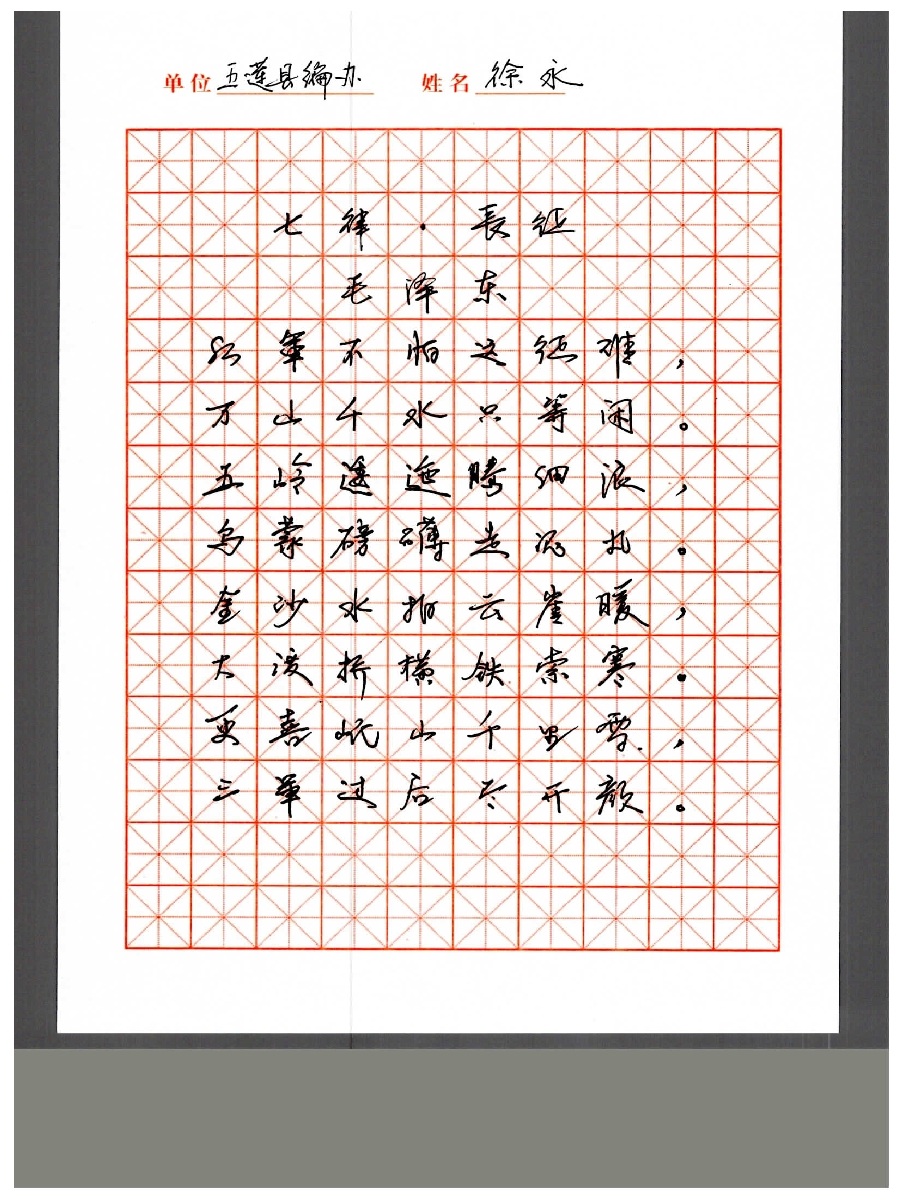 单位 五莲县编办 姓名 徐永
七律·長征
毛泽东
红军不怕远征难，
万山千水只等闲。
五岭逶迤腾细浪，
乌蒙磅礴走泥丸。
金沙水拍云崖暖，
大渡桥横铁索寒。
更喜岷山千里雪，
三军过后尽开颜。